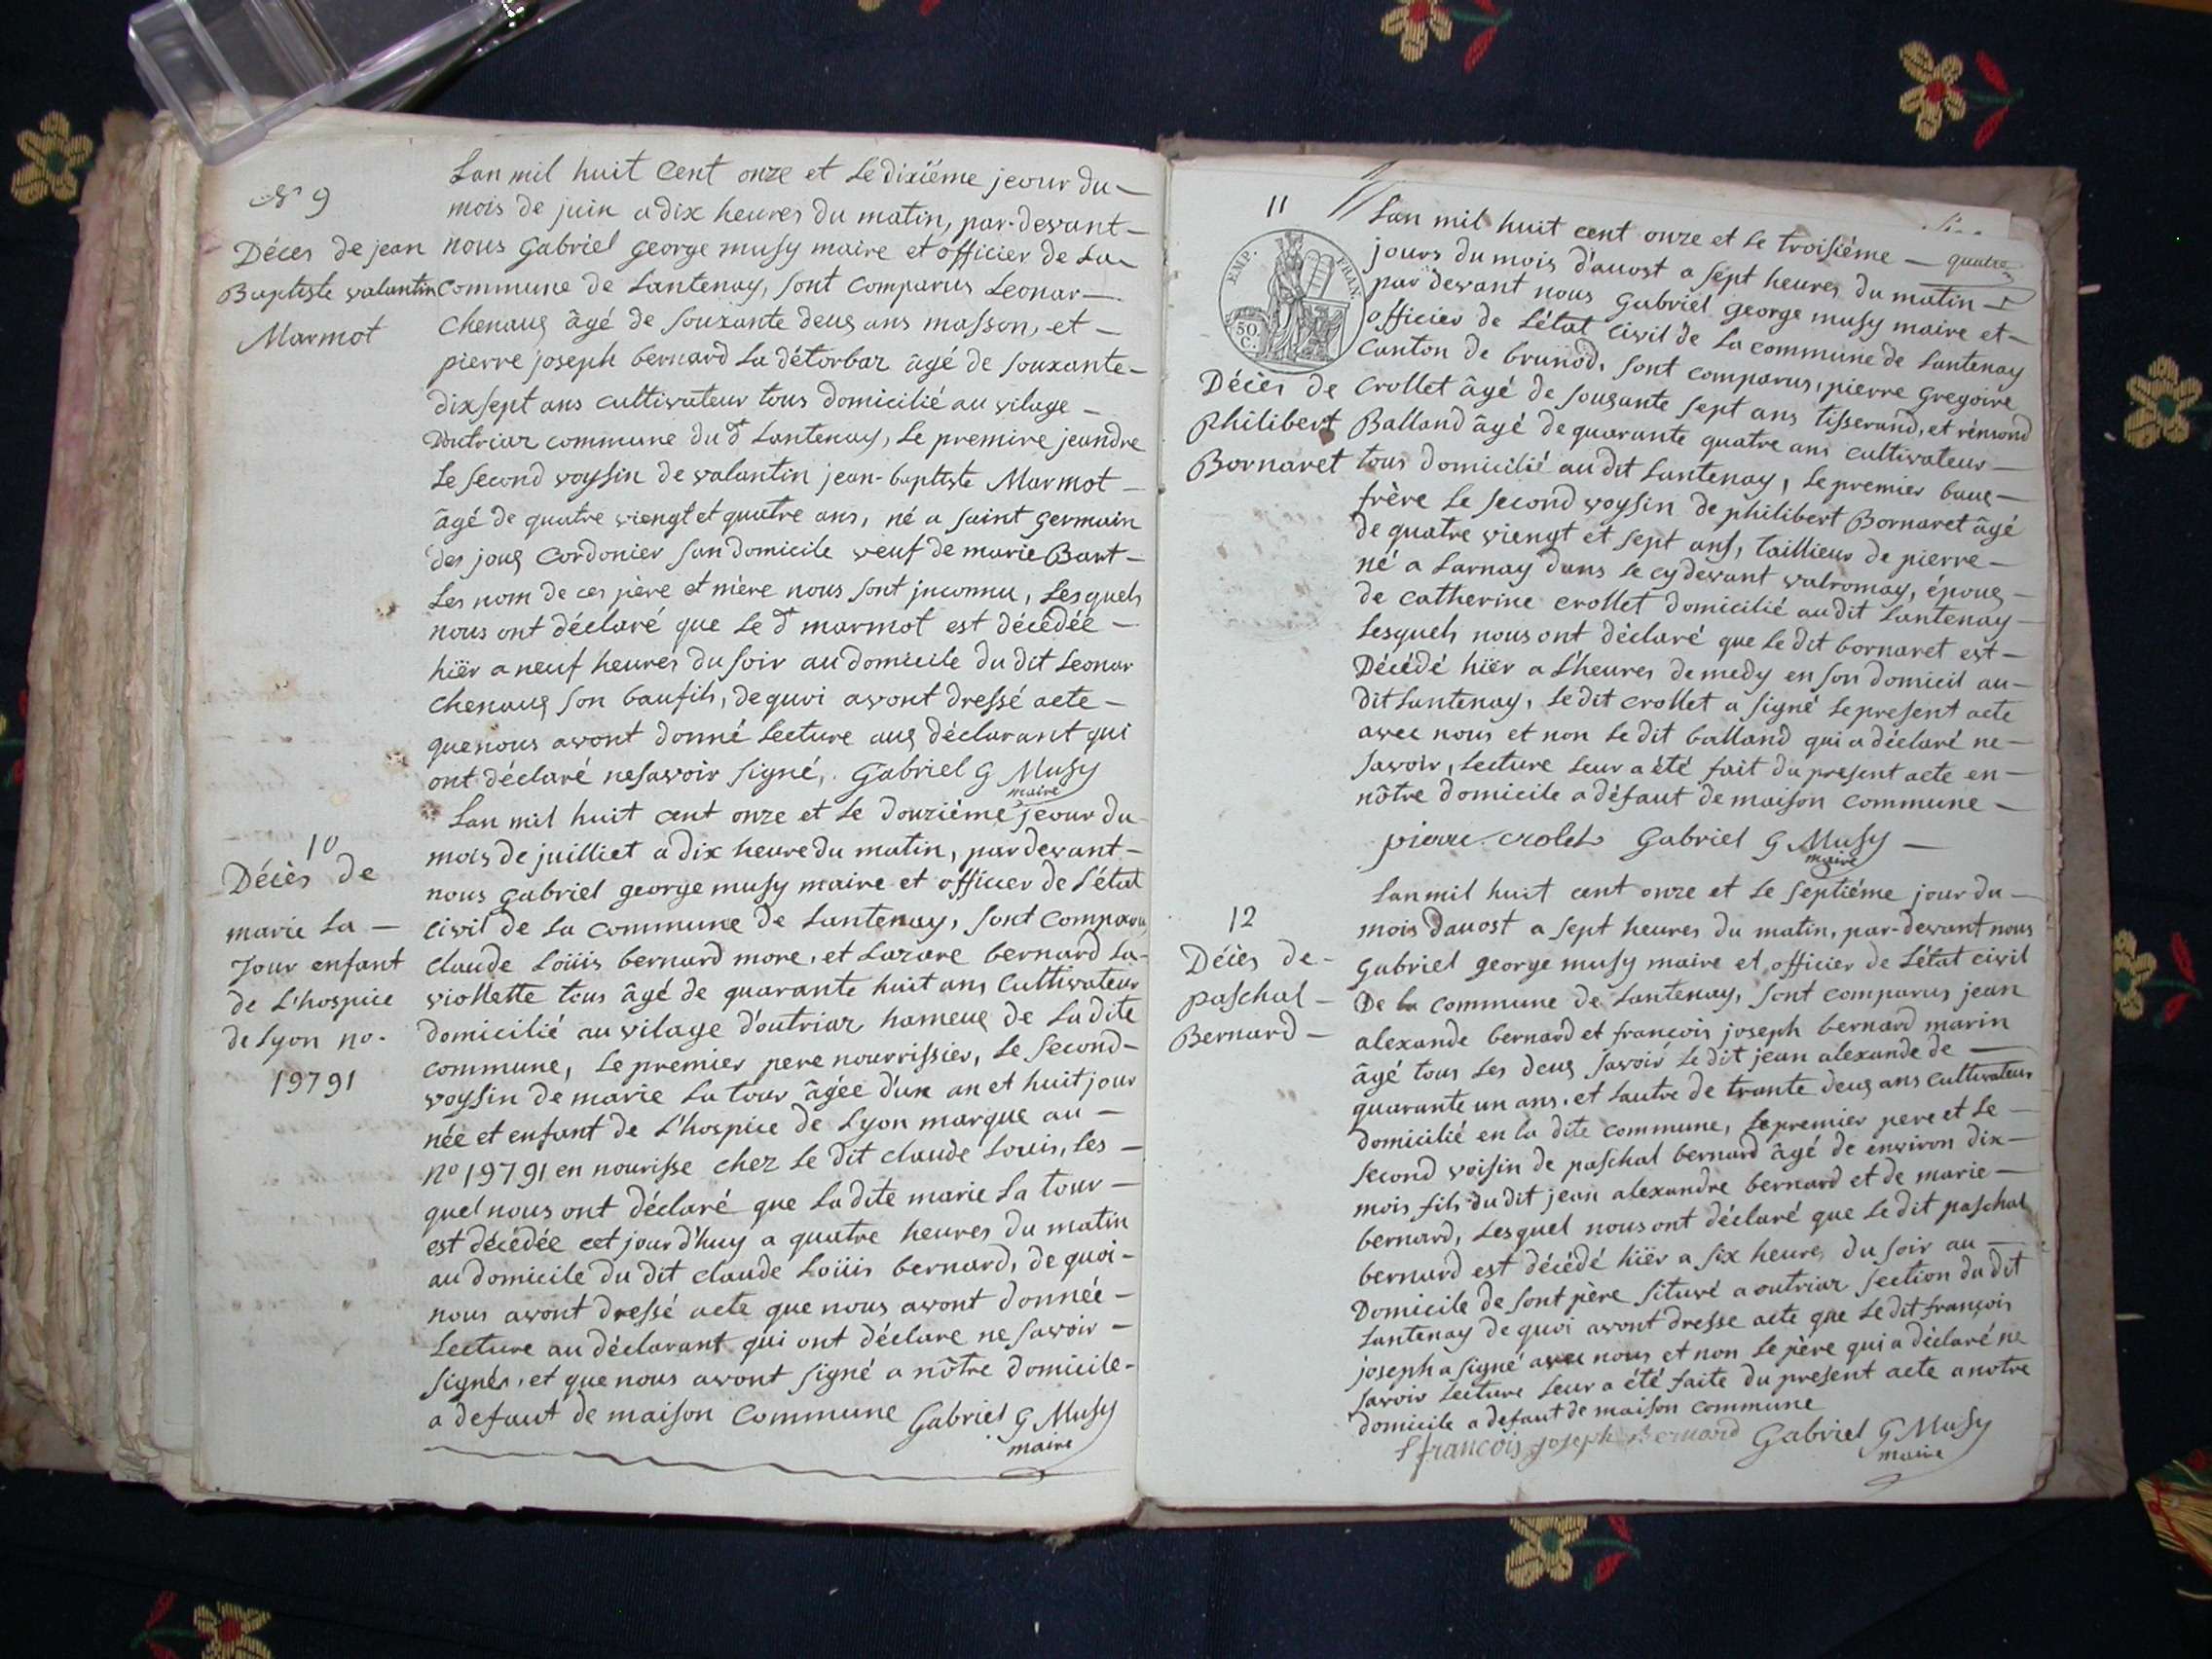 N° 9
Déces de jean
Baptiste valantin
Marmot
Lan mil huit Cent onze et Le dixiéme jeour du
mois de juin a dix heures du matin, par-devant
nous Gabriel george musy maire et officier de La
Commune de Lantenay, sont Comparus Leonar
Chenaux âgé de souxante deux ans masson, et
pierre joseph bernard La détorbaz âgé de souxante
dix sept ans cultivateur tous domicilié au vilage
Doutriaz commune du dt Lantenay, Le premire jeandre
Le second voysin de valantin jean-baptiste Marmot
âgé de quatre viengt et quatre ans, né a saint germain
des joux Cordonier san domicile veuf de marie Bart
Les nom de ces père et mère nous sont jnconnu, Lesquels
nous ont déclaré que Le dt marmot est décédée
hiër a neuf heures du soir au domicile du dit Leonar
Chenaux son baufils, de quoi avont dressé acte
que nous avont donné Lecture aux déclarant qui
ont déclaré ne savoir signé, Gabriel G Musy
maire
10
Décès de
marie La
Tour enfant
de L'hospice
de Lyon no.
19791
Lan mil huit cent onze et Le douziéme jeour du
mois de juilliet a dix heure du matin, par devant
nous gabriel george musy maire et officier de L'état
civil de La commune de Lantenay, sont Comparu
Claude Loüis bernard more, et Lazare bernard La
viollette tous âgé de quarante huit ans Cultivateur
domicilié au vilage d'outriaz hameux de La dite
commune, Le premier pere nourrissier, Le second
voysin de marie La tour âgée d'un an et huit jour
née et enfant de L'hospice de Lyon marque au
No 19791 en nourisse chez Le dit claude Louis, Les
quel nous ont déclaré que La dite marie La tour
est décédée cet jour d'huy a quatre heures du matin
au domicile du dit claude Loüis bernard, de quoi
nous avont dressé acte que nous avont donnée
Lecture au déclarant qui ont déclare ne savoir
signér, et que nous avont signé a nôtre domicile
a defaut de maison Commune Gabriel G Musy
maire
11
EMP. FRAN.
50 C.
Décès de
philibert
Bornaret
Lan mil huit cent onze et Le troisiéme
quatre
jours du mois d'auost a sept heures du matin
par devant nous Gabriel george musy maire et
officier de L'état civil de La commune de Lantenay
Canton de brunod, sont comparus, pierre gregoire
Crollet âgé de souxante sept ans tisserand, et rémond
Balland âgé de quarante quatre ans cultivateur
tous domicilié au dit Lantenay, Le premier baux
frère Le second voysin de philibert Bornaret âgé
de quatre viengt et sept ans, taillieur de pierre
né a Larnay dans Le cy devant valromay, époux
de catherine crollet domicilié au dit Lantenay
Lesquels nous ont déclaré que Le dit bornaret est
Décédé hiër a L'heures de medy en son domicil au
dit Lantenay, Le dit crollet a signé Le present acte
avec nous et non Le dit balland qui a déclaré ne
savoir, Lecture Leur a été fait du present acte en
nôtre domicile a défaut de maison Commune
pierre crolet Gabriel G Musy
maire
12
Décès de
paschal
Bernard
Lan mil huit cent onze et Le septiéme jour du
mois dauost a sept heures du matin, par-devant nous
Gabriel george musy maire et officier de L'état civil
De la commune de Lantenay, sont comparus jean
alexande bernard et francois joseph bernard marin
âgé tous Les deux savoir Le dit jean alexande de
quarante un ans, et Lautre de trante deux ans Cultivateur
domicilié en la dite commune, Le premier pere et Le
second voisin de paschal bernard âgé de environ dix
mois fils du dit jean alexandre bernard et de marie
bernard, Lesquel nous ont déclaré que Le dit paschal
bernard est décédé hiër a six heures du soir au
Domicile de sont père situé a outriaz section du dit
Lantenay de quoi avont dresse acte que Le dit françois
joseph a signé avec nous et non Le père qui a déclaré ne
savoir Lecture Leur a été faite du present acte a notre
domicile a defaut de maison commune
francois joseph Bernard Gabriel G Musy
maire